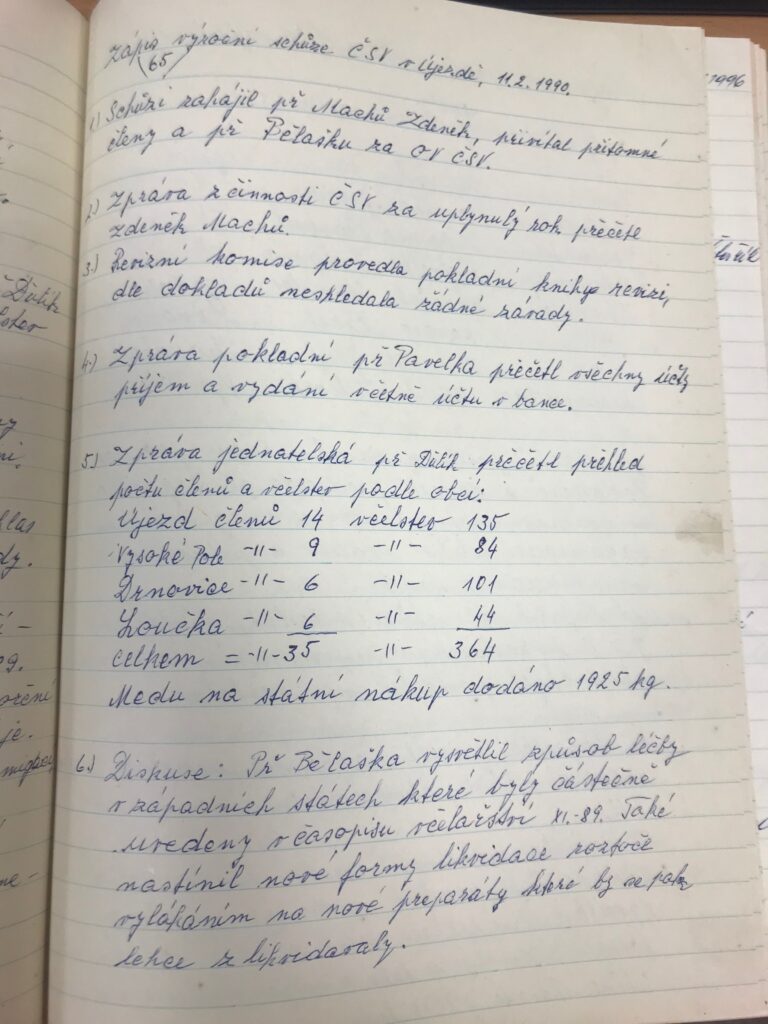 Zápis výroční schůze ČSV v Újezdě, 11.2.1990.
(65)
1.) Schůzi zahájil př Machů Zdeněk, přivítal přítomné
členy a př Bělašku za OV ČSV.
2.) Zpráva z činnosti ČSV za uplynulý rok přečetl
Zdeněk Machů.
3.) Revizní komise provedla pokladní knihy revizi,
dle dokladů neshledala žádné závady.
4.) Zpráva pokladní př Pavelka přečetl všechny účty
příjem a vydání včetně účtu v bance.
5.) Zpráva jednatelská př Důlík přečetl přehled
počtu členů a včelstev podle obcí:
Újezd členů 14 včelstev 135
Vysoké Pole -11- 9 -11- 84
Drnovice -11- 6 -11- 101
Loučka -11- 6 -11- 44
Celkem = -11- 35 -11- 364
Medu na státní nákup dodáno 1925 kg.
6.) Diskuse: Př Bělaška vysvětlil způsob léčby
v západních státech které byly částečně
uvedeny v časopisu včelařství XI.-89. Také
nastínil nové formy likvidace roztoče
vylákáním na nové preparáty které by se pak
lehce zlikvidovaly.
1996